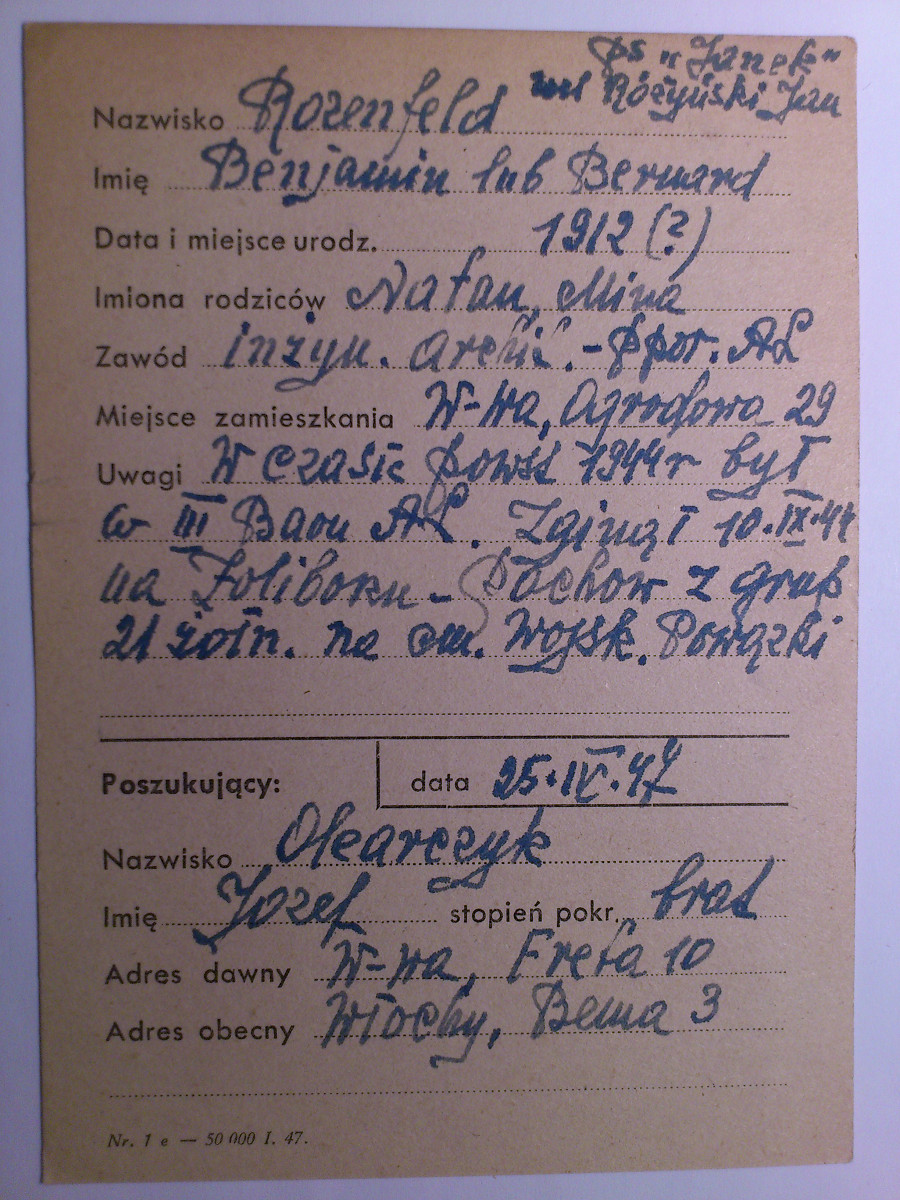 ps „Janek"
vel Różyński Jan
Nazwisko Rozenfeld
Imię Benjamin lub Bernard
Data i miejsce urodz. 1912 (?)
Imiona rodziców Natan, Mina
Zawód inżyn. archit. - ppor. AL
Miejsce zamieszkania W-wa, Ogrodowa 29
Uwagi W czasie powst 1944 r był
w III Baon AL. Zginął 10.IX.44
na Żoliborzu - Pochow z grup
21 żołn. na cm. Wojsk. Powązki
Poszukujący: data 25.IV.47
Nazwisko Olearczyk
Imię Józef stopień pokr. brat
Adres dawny W-wa, Freta 10
Adres obecny Włochy, Bema 3
Nr. 1 e — 50 000 I. 47.